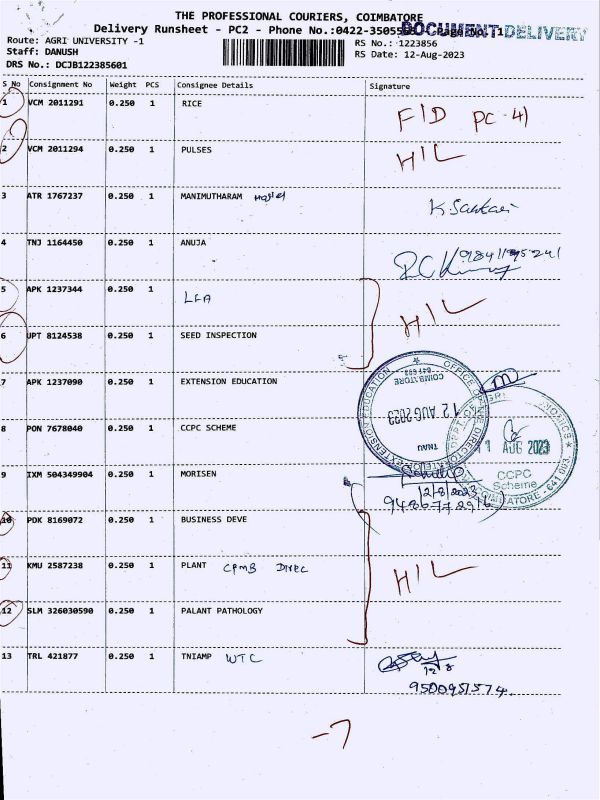 THE PROFESSIONAL COURIERS, COIMBATORE
Delivery Runsheet - PC2 - Phone No.:0422-35055 Page No. 1
DOCUMENT DELIVERY
Route: AGRI UNIVERSITY -1
RS No.: 1223856
Staff: DANUSH
RS Date: 12-Aug-2023
DRS No.: DCJB122385601
S No Consignment No Weight PCS Consignee Details Signature
1 VCM 2011291 0.250 1 RICE F/D PC-41
2 VCM 2011294 0.250 1 PULSES H/L
3 ATR 1767237 0.250 1 MANIMUTHARAM Hostel
4 TNJ 1164450 0.250 1 ANUJA
5 APK 1237344 0.250 1 LFA H/L
6 UPT 8124538 0.250 1 SEED INSPECTION
7 APK 1237090 0.250 1 EXTENSION EDUCATION
COIMBATORE
12 AUG 2023
TNAU
8 PON 7678040 0.250 1 CCPC SCHEME
AUG 2023
CCPC
Scheme
COIMBATORE - 641 003
9 IXM 504349904 0.250 1 MORISEN
12/8/2023
9486772916
10 PDK 8169072 0.250 1 BUSINESS DEVE
11 KMU 2587238 0.250 1 PLANT CPMB DIREC H/L
12 SLM 326030590 0.250 1 PALANT PATHOLOGY
13 TRL 421877 0.250 1 TNIAMP WTC
12/8
9500951574.
-7